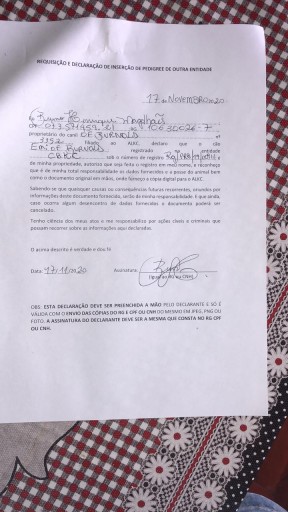 REQUISIÇÃO E DECLARAÇÃO DE INSERÇÃO DE PEDIGREE DE OUTRA ENTIDADE
17 de NOVEMBRO de 20
Eu
CPF
proprietário do canil OF BURNOLD nº
3352 filiado ao ALKC, declaro que o cão
registrado na entidade
CBKC sob o número de registro
de minha propriedade, autorizo que seja feito o registro em meu nome, e reconheço
que é de minha total responsabilidade os dados fornecidos e a posse do animal bem
como o documento original em mãos, onde forneço a cópia digital para o ALKC.
Sabendo se que quaisquer causas ou consequências futuras recorrentes, oriundos por
informações deste documento fornecido, serão de minha responsabilidade. E que ainda,
caso ocorra algum desencontro de dados fornecidos o documento poderá ser
cancelado.
Tenho ciência dos meus atos e me responsabilizo por ações cíveis e criminais que
possam recorrer sobre as informações aqui declaradas.
O acima descrito é verdade e dou fé
Data: 17/11/20 Assinatura:
(igual ao RG ou CNH)
OBS: ESTA DECLARAÇÃO DEVE SER PREENCHIDA A MÃO PELO DECLARANTE E SÓ É
VÁLIDA COM O ENVIO DAS CÓPIAS DO RG E CPF OU CNH DO MESMO EM JPEG, PNG OU
FOTO. A ASSINATURA DO DECLARANTE DEVE SER A MESMA QUE CONSTA NO RG CPF
OU CNH.